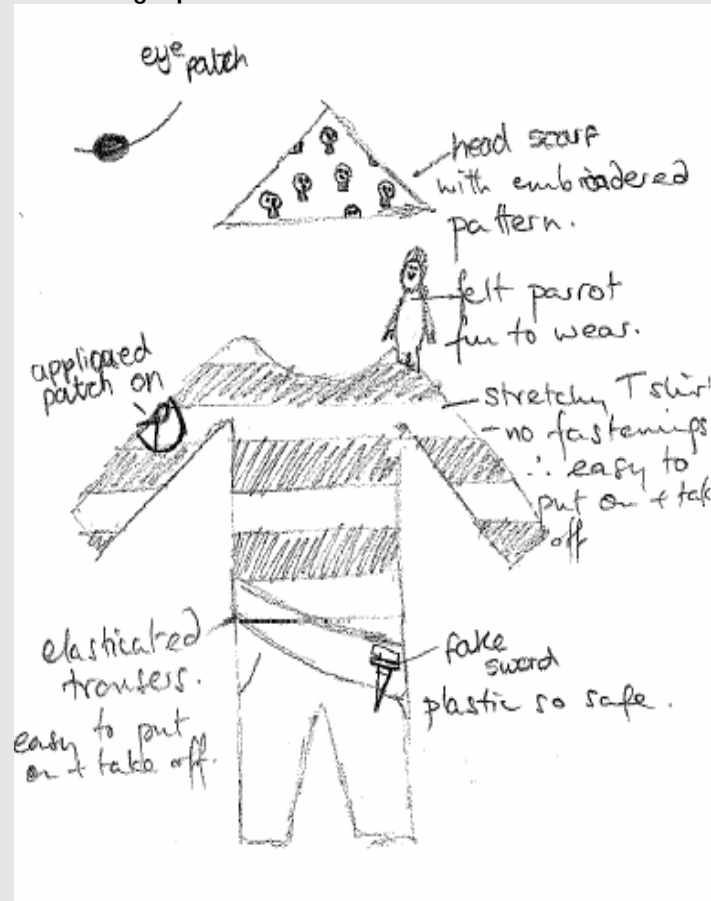 eye patch
head scarf
with embroadered
pattern.
felt parrot
fun to wear.
appliqued
patch on
stretchy T shir
- no fastenings
∴ easy to
put on + take
off
elasticated
trousers.
easy to put
on + take off.
fake
sword
plastic so safe.